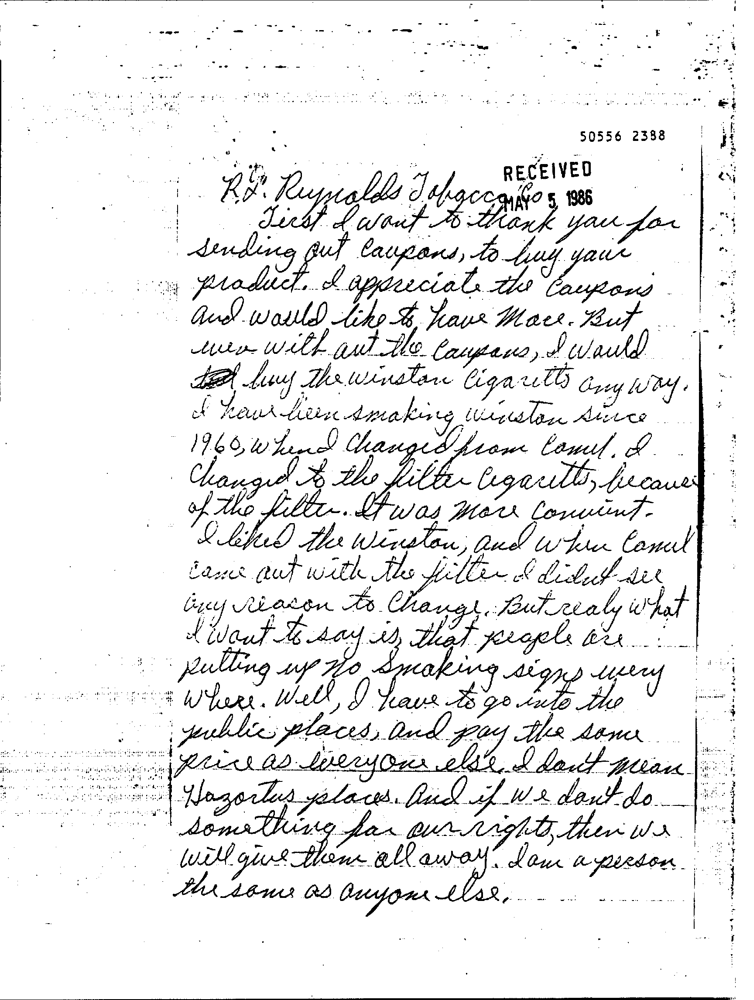 50556 2388
RECEIVED
R.J. Reynolds Tobacco Co
MAY 5 1986
First I want to thank you for
sending out Coupons, to buy your
product. I appreciate the Coupons
and would like to have More. But
even with out the Coupons, I would
buy the winston Cigaretts any way.
I have been smoking winston since
1960, when I Changed from Camel. I
Changed to the filter Cegaretts, because
of the filter. It was More convient.
I liked the Winston, and when Camel
came out with the filter I didnt see
any reason to Change. But realy what
I want to say is, that people are
putting up No Smoking signs every
where. Well, I have to go into the
public places, and pay the same
price as everyone else. I dont mean
Hazortus places. And if we dont do
something for our rights, then we
will give them all away. I am a person
the same as anyone else.